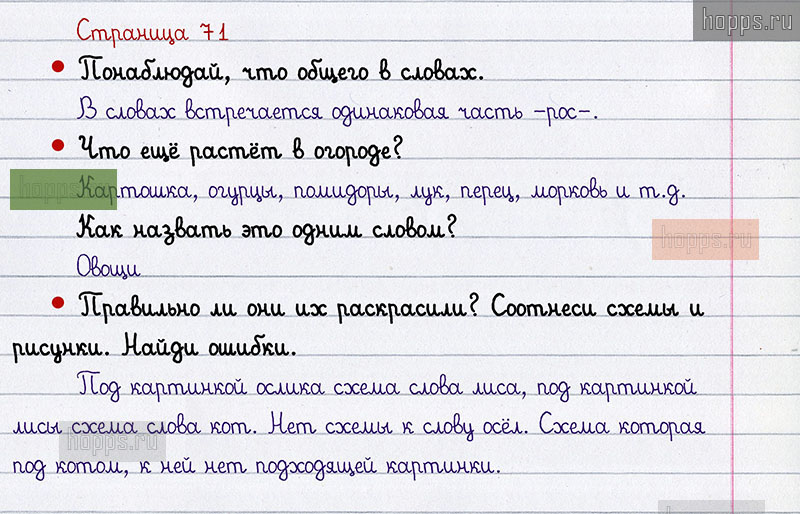 hopps.ru
Страница 71
• Понаблюдай, что общего в словах.
В словах встречается одинаковая часть –рос–.
• Что ещё растёт в огороде?
Картошка, огурцы, помидоры, лук, перец, морковь и т.д.
hopps
Как назвать это одним словом?
hopps.ru
Овощи
• Правильно ли они их раскрасили? Соотнеси схемы и
рисунки. Найди ошибки.
Под картинкой ослика схема слова лиса, под картинкой
лисы схема слова кот. Нет схемы к слову осёл. Схема которая
hopps.ru
под котом, к ней нет подходящей картинки.